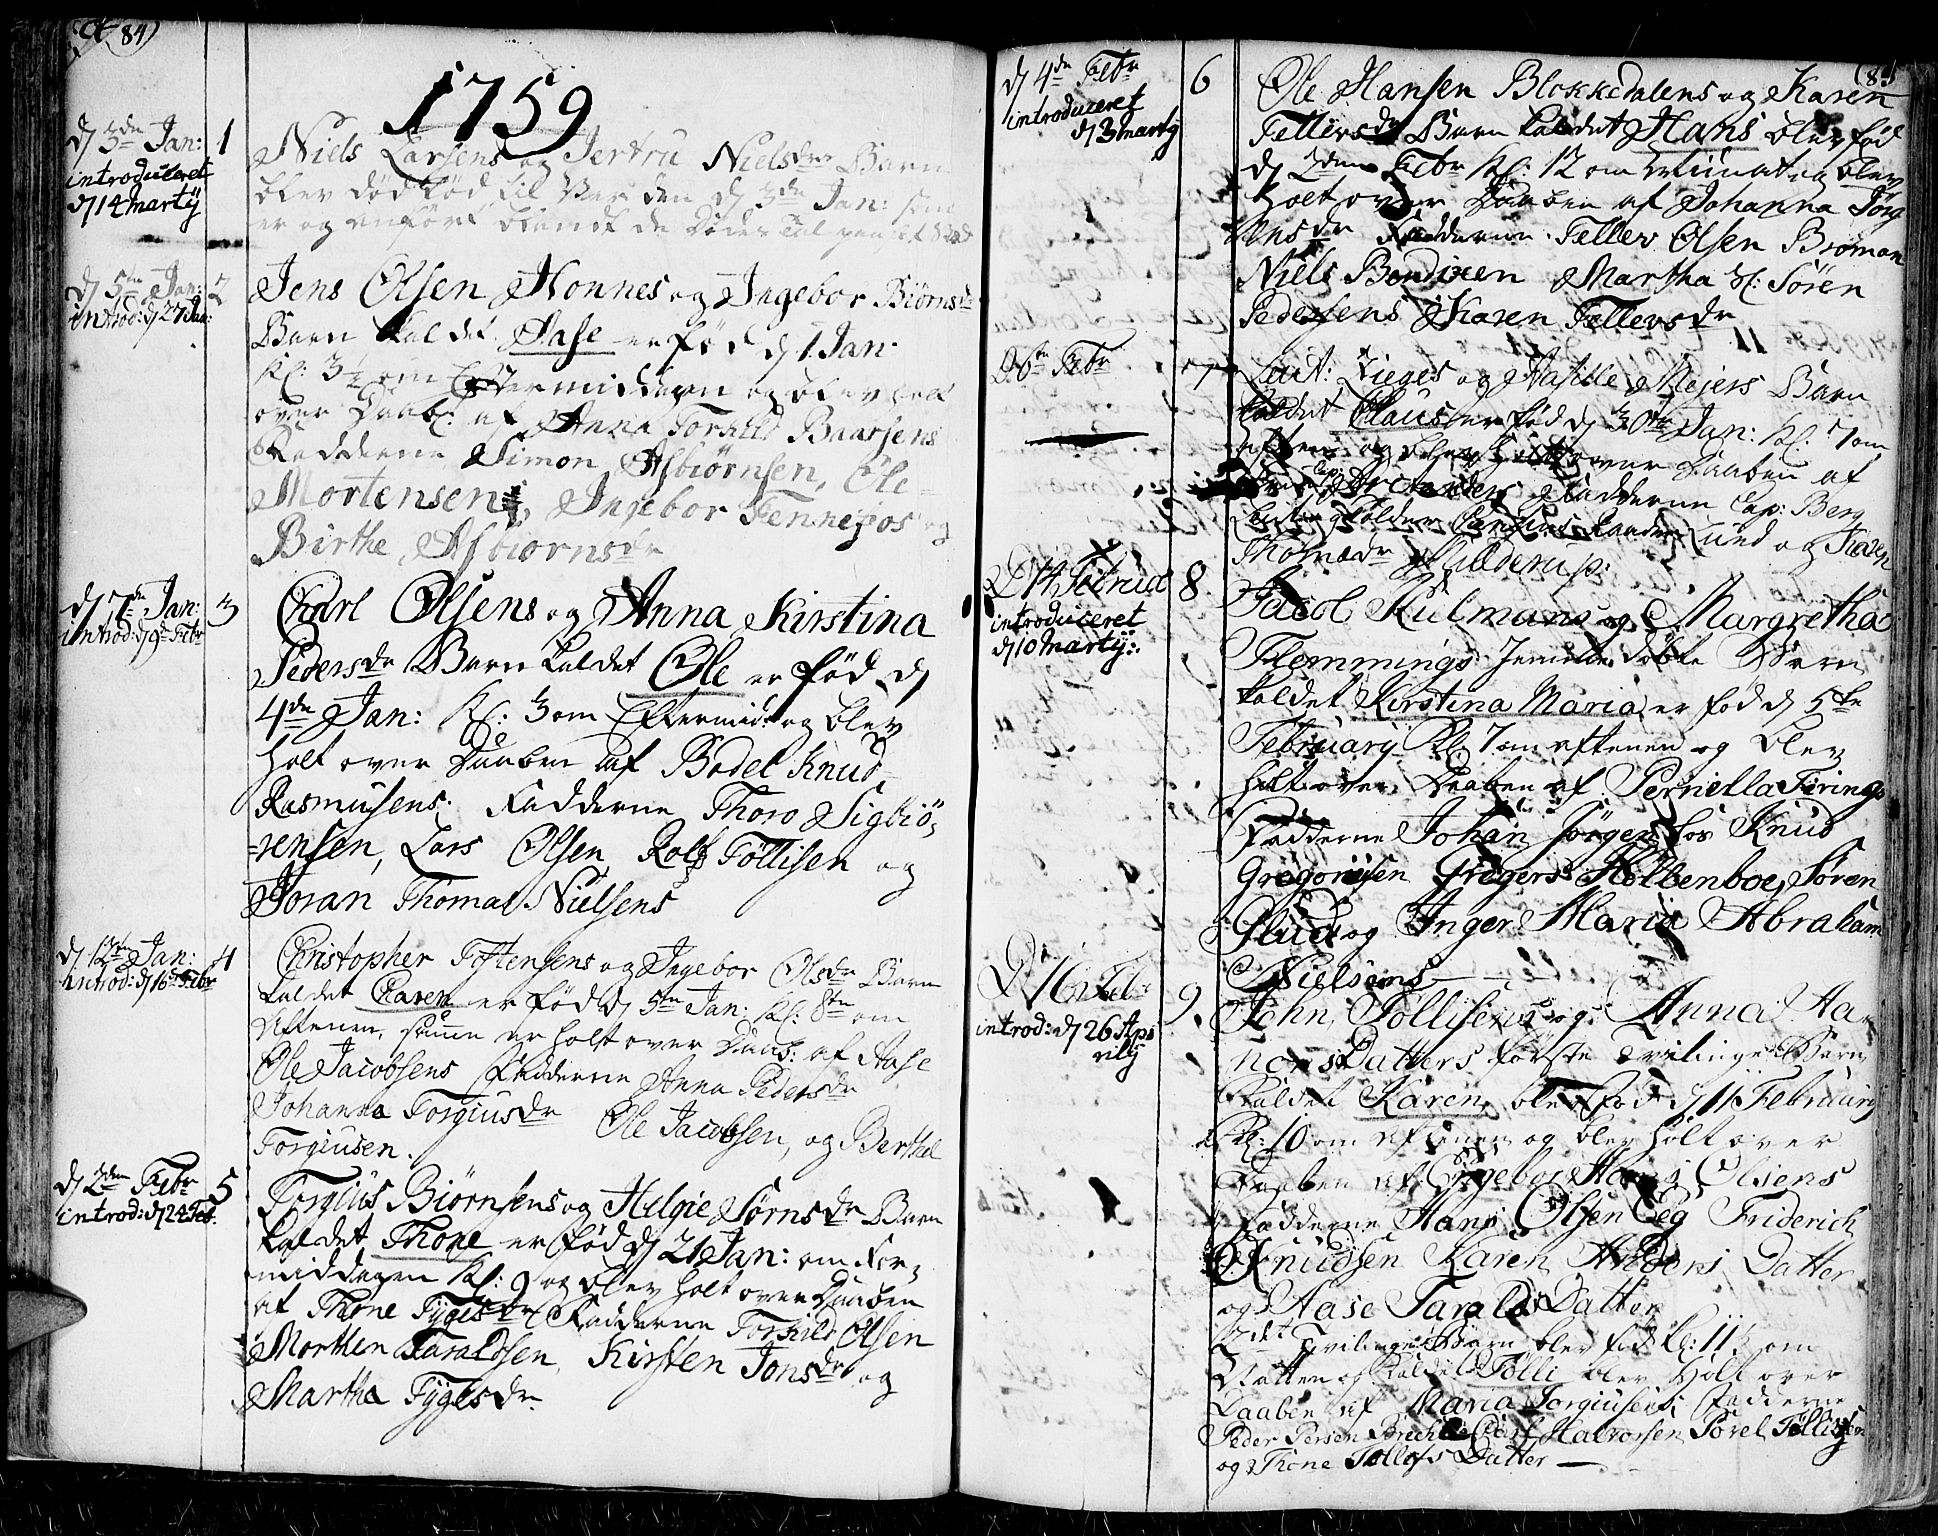 84)
1759
d 3de Jan: 1
introduceret
d 14 Martÿ
Niels Larsens og Jertru Nielsdr Barn
blev dødfød til Verden d 3de Jan: som
er og anført blandt de Dødes Tal
d 5te Jan: 2
introd: d 27 Jan:
Jens Olsen Honnes og Ingebor Biørnsdr
Barn kaldet Aase er fød d 1 Jan:
Kl: 3½ om Eftermiddagen og blev holt
over Daab: af Anna Torkild Baarsens
Fadderne Simon Asbiørnsen, Ole
Mortensen, Ingebor Fennefos og
Birthe Asbiørnsdr
d 7de Jan: 3
introd: d 9de Febr
Carl Olsens og Anna Kirstina
Pedersdr Barn kaldet Ole er fød d
4de Jan: Kl: 3 om Eftermid: og blev
holt over Daaben af Bodel Knud
Rasmusens. Fadderne Thoro Sigbiø-
=rensen, Lars Olsen, Rolf Tøllisen og
Joran Thomas Nielsens
d 12te Jan: 4
introd: d 16de Febr
Christopher Toftensens og Ingebor Olsdr Barn
kaldet Caren er fød d 5te Jan: Kl: 8te om
Aftenen, samme er holt over Daab: af Aase
Ole Jacobsens Fadderne Anna Pedersdr
Johanna Torgiusdr Ole Jacobsen, og Berthel
Torgiusen.
d 2den Febr 5
introd: d 24 Feb.
Torgius Biørnsens og Helgie Sørnsdr Barn
kaldet Thone er fød d 21 Jan: om For-
middagen Kl: 9 og blev holt over Daaben
af Thone Tygesdr Fadderne Torkild Olsen
Morthen Taraldsen, Kirsten Jonsdr og
Martha Tygesdr
d 4de Febr 6
introduceret
d 3 Martÿ
Ole Hansen Blokkedalens og Karen
Tellevsdr Barn kaldet Hans blev fød
d 2den Febr Kl: 12 om Minat og blev
holt over Daaben af Johanna Jørg
ensdr Fadderne Tellev Olsen Broman
Niels Bendixen Martha Sl: Søren
Pedersens Karen Tellevsdr
D 6te Febr 7
Leut: Zieges og Hasille Mejers Barn
kaldet Claus er fød d 30te Jan: Kl: 7 om
Aften og blev holt over Daaben af
Cap: Fadderne Cap: Berg
Lund og Karen
Thomædr
D 14 Februar 8
introduceret
d 10 Martÿ:
Jacob Kulmans og Margretha
Flemmings Jemme døbte Barn
kaldet Kirstina Maria er fød d 5te
Februarÿ Kl: 7 om Aftenen og blev
holt over Daaben af Pernella Firings
Fadderne Johan Jørgen hos Knud
Gregorisen Gregers Holbenboe, Søren
Glud og Inger Maria Abraham
Nielsens
D 16 Feb: 9.
introd: d 26 Ap
rilÿ
John Tøllisens og Anna Aa-
nons Datters første Tvilinge Barn
kaldet Karen blev fød d 11 Februarÿ
Kl: 10 om Aftenen og blev holt over
Daaben af Ingebor Hans Olsens
Fadderne Hans Olsen Eeg Friderich
Knudsen Karen Anders Datter
og Aase Taralds Datter
2det Tvilinge Barn blev fød Kl: 11½ om
Natten og kaldet Tølli blev holt over
Daaben af Maria Torgiusens, Fadderne
Peder Persen Carl Halvorsen Sorel Tøllisen
og Thone Tollofs Datter